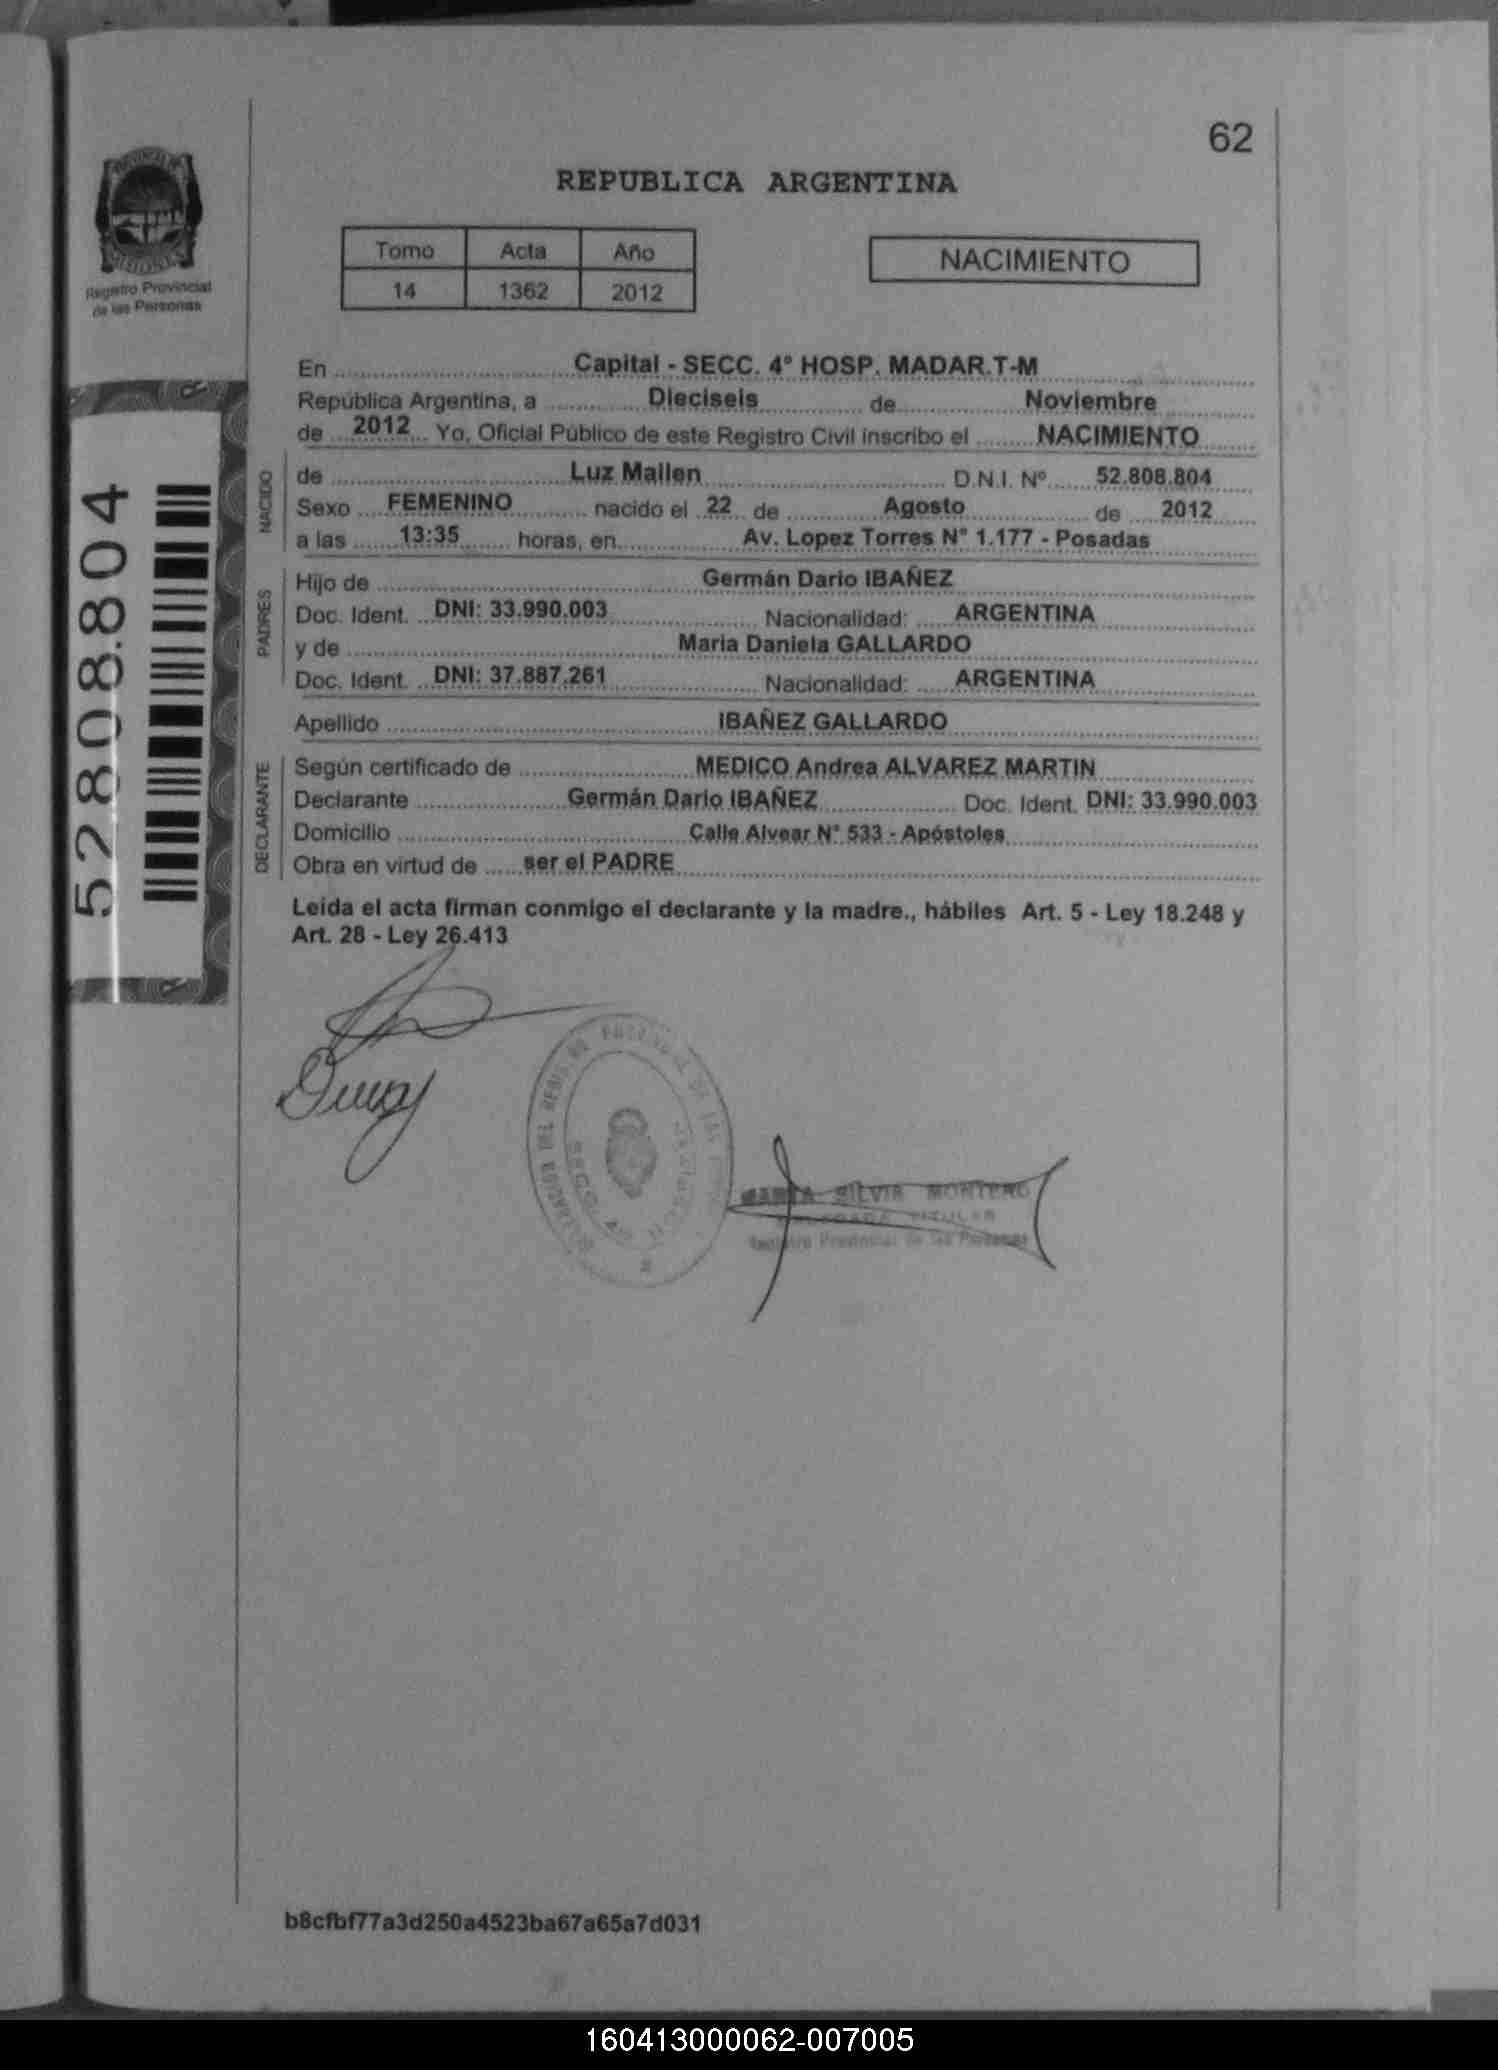 62
REPUBLICA ARGENTINA
PROVINCIA DE
MISIONES
Registro Provincial
de las Personas
Tomo Acta Año
14 1362 2012
NACIMIENTO
En Capital - SECC. 4° HOSP. MADAR.T-M
República Argentina, a Dieciseis de Noviembre
de 2012 Yo, Oficial Público de este Registro Civil inscribo el NACIMIENTO
NACIDO
de Luz Mailen D.N.I. Nº 52.808.804
Sexo FEMENINO nacido el 22 de Agosto de 2012
a las 13:35 horas, en Av. Lopez Torres N° 1.177 - Posadas
PADRES
Hijo de Germán Dario IBAÑEZ
Doc. Ident. DNI: 33.990.003 Nacionalidad: ARGENTINA
y de Maria Daniela GALLARDO
Doc. Ident. DNI: 37.887.261 Nacionalidad: ARGENTINA
Apellido IBAÑEZ GALLARDO
DECLARANTE
Según certificado de MEDICO Andrea ALVAREZ MARTIN
Declarante Germán Dario IBAÑEZ Doc. Ident. DNI: 33.990.003
Domicilio Calle Alvear N° 533 - Apóstoles
Obra en virtud de ser el PADRE
Leida el acta firman conmigo el declarante y la madre., hábiles Art. 5 - Ley 18.248 y
Art. 28 - Ley 26.413
52.808.804
SILVIA MONTERO
TITULAR
Registro Provincial de las Personas
b8cfbf77a3d250a4523ba67a65a7d031
160413000062-007005